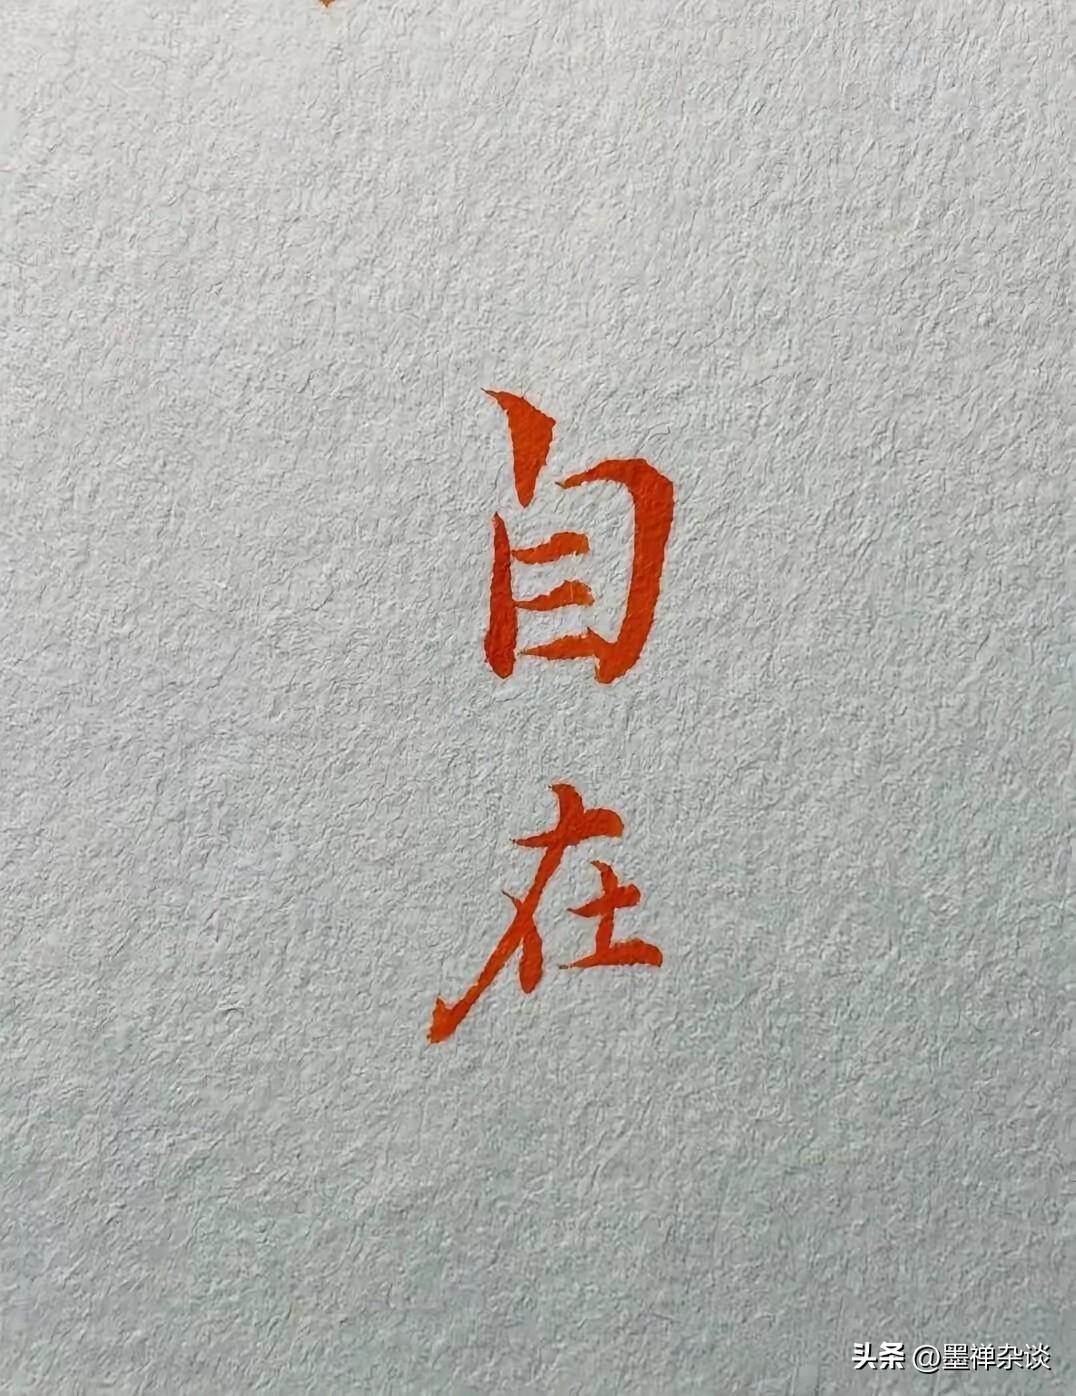 自在
头条 @墨禅杂谈